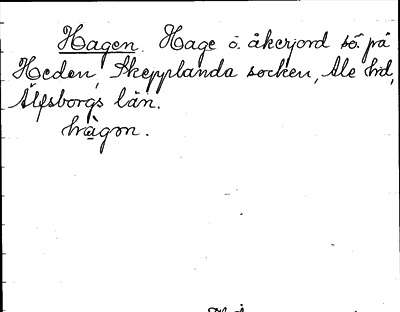 Hagen. Hage o. åkerjord sö. på
Heden, Skepplanda socken, Ale hd,
Älfsborgs län.
hàgǝn.